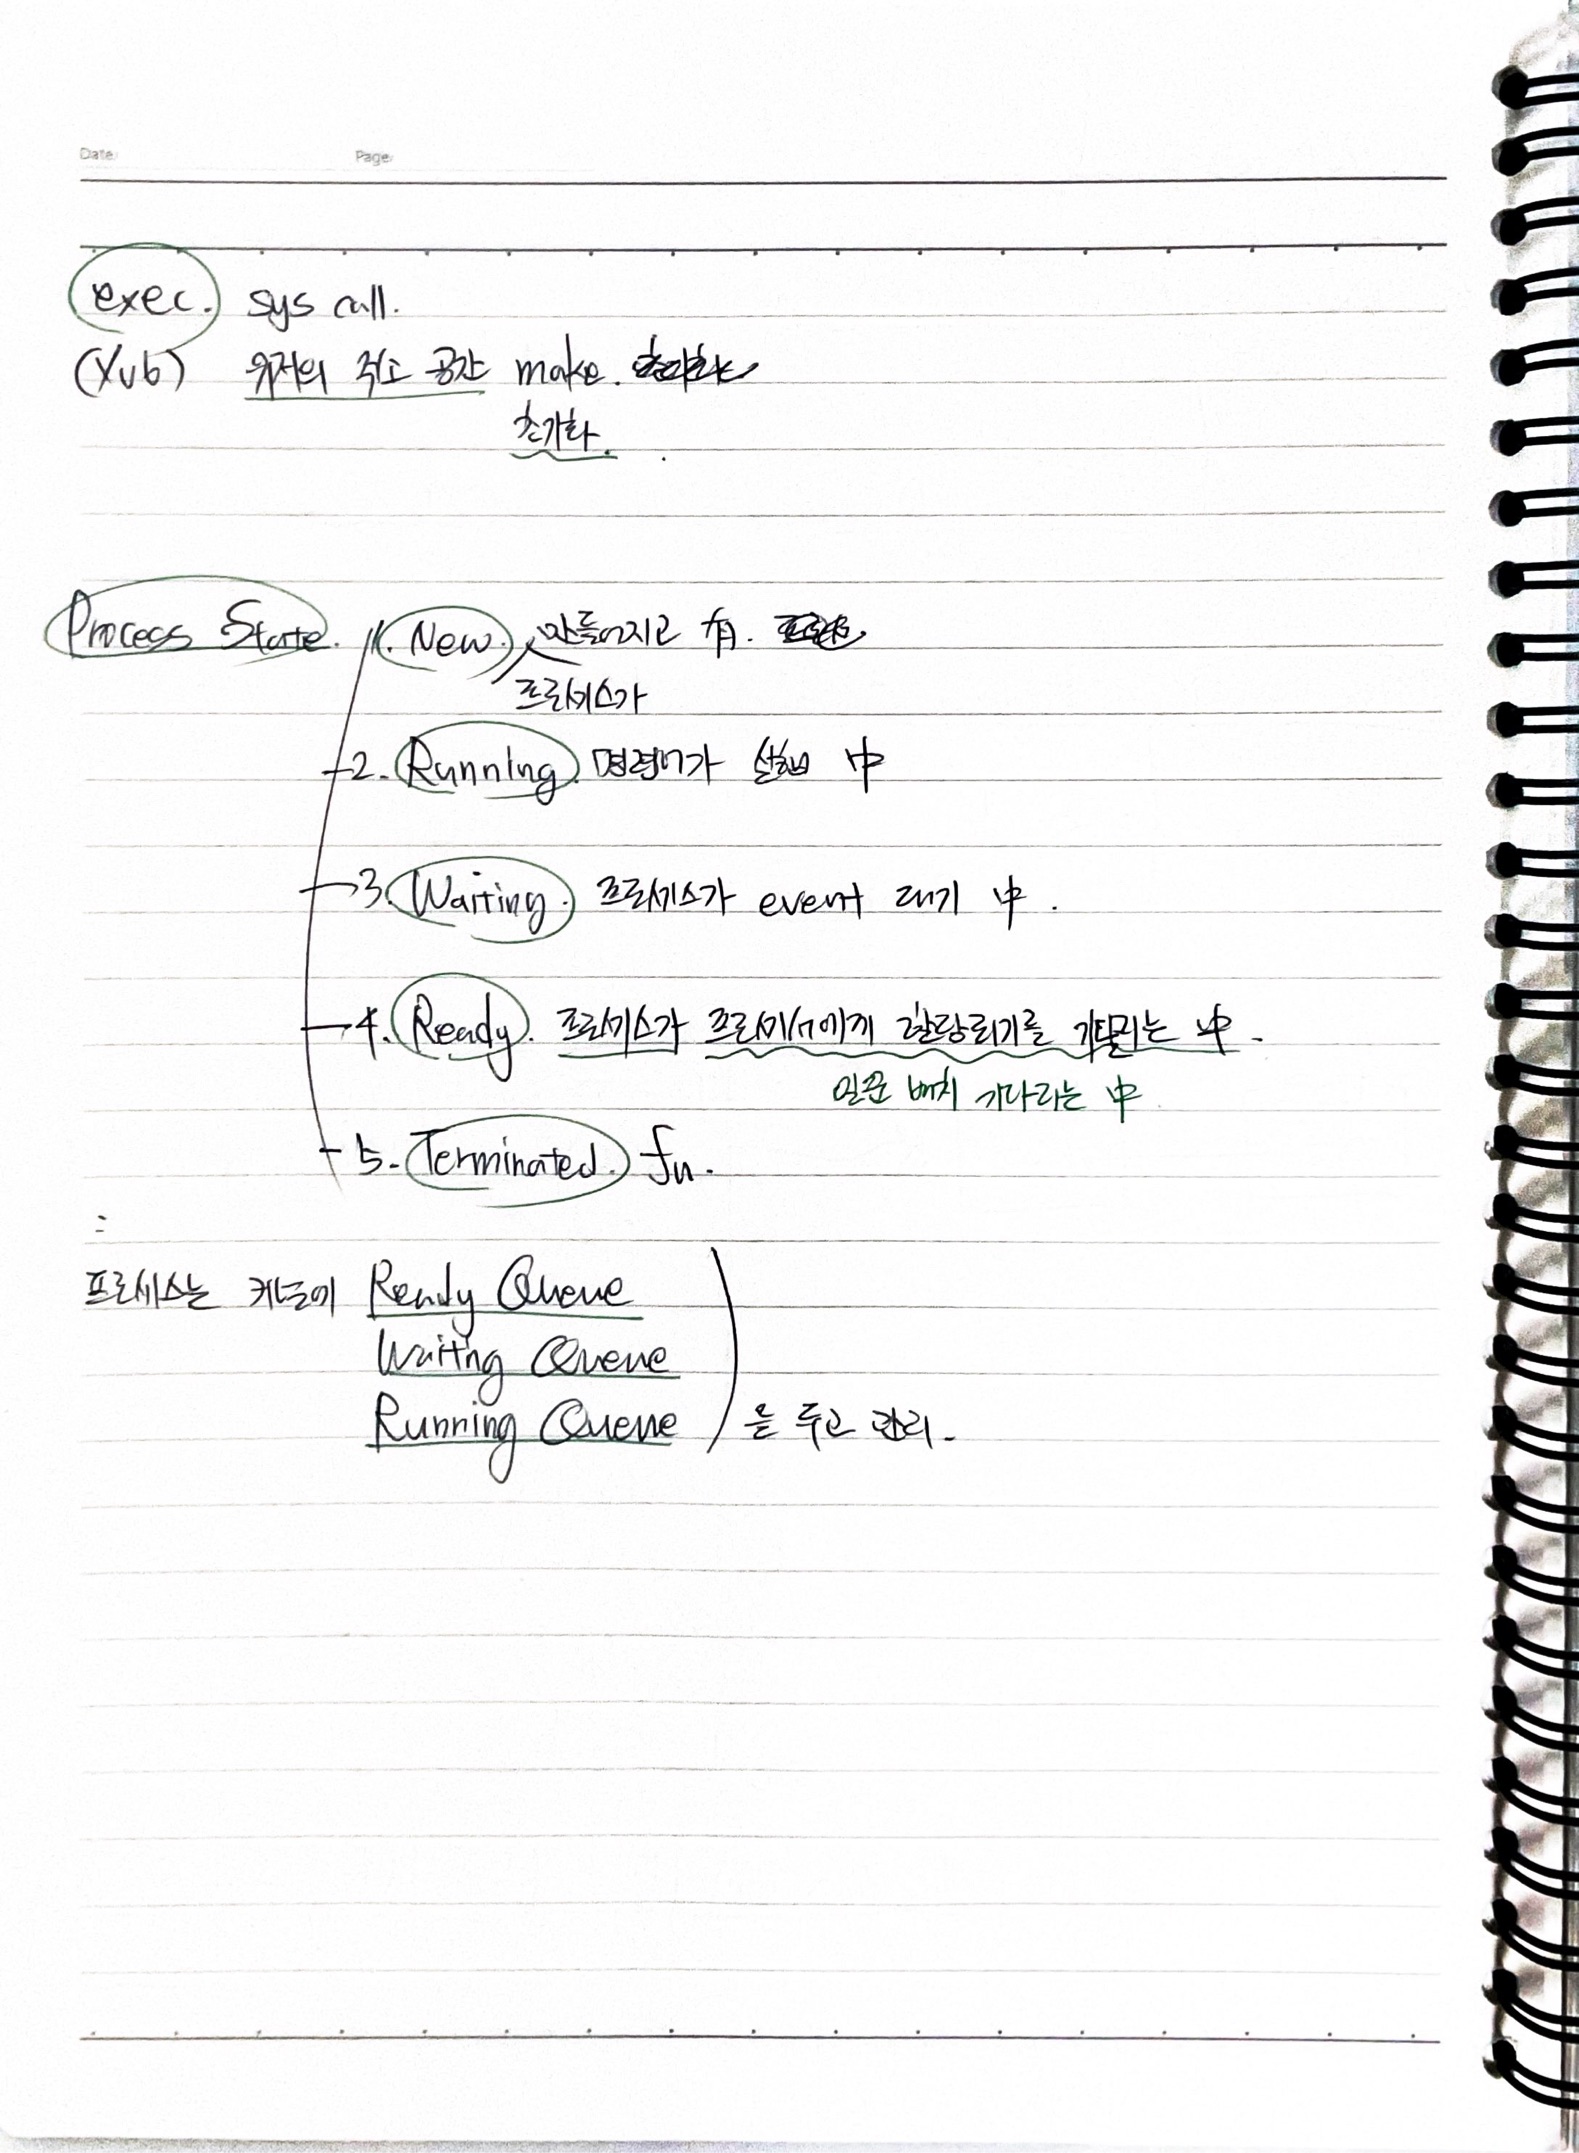 Date: Page:
exec. sys call.
(Xv6) 유저의 주소 공간 make.
초기화.
Process State. 1. New. 만들어지고 有.
프로세스가
2. Running. 명령어가 실행 中
3. Waiting. 프로세스가 event 대기 中.
4. Ready. 프로세스가 프로세서에게 할당되기를 기다리는 中.
일꾼 배치 기다리는 中
5. Terminated. fin.
프로세스는 커널에 Ready Queue
Waiting Queue
Running Queue 을 두고 관리.